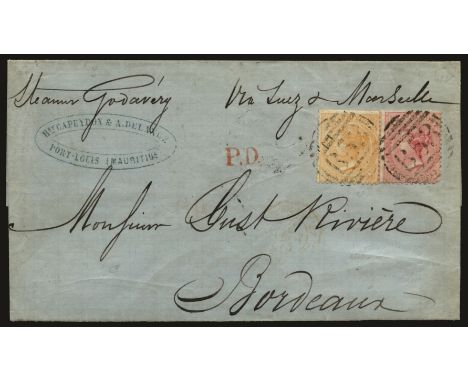 Steamer Godavéry Via Suez & Marseille
Hte CAPEYRON & A. DEL
PORT-LOUIS (MAURITIUS
P.D.
Monsieur Gust Rivière
Bordeaux